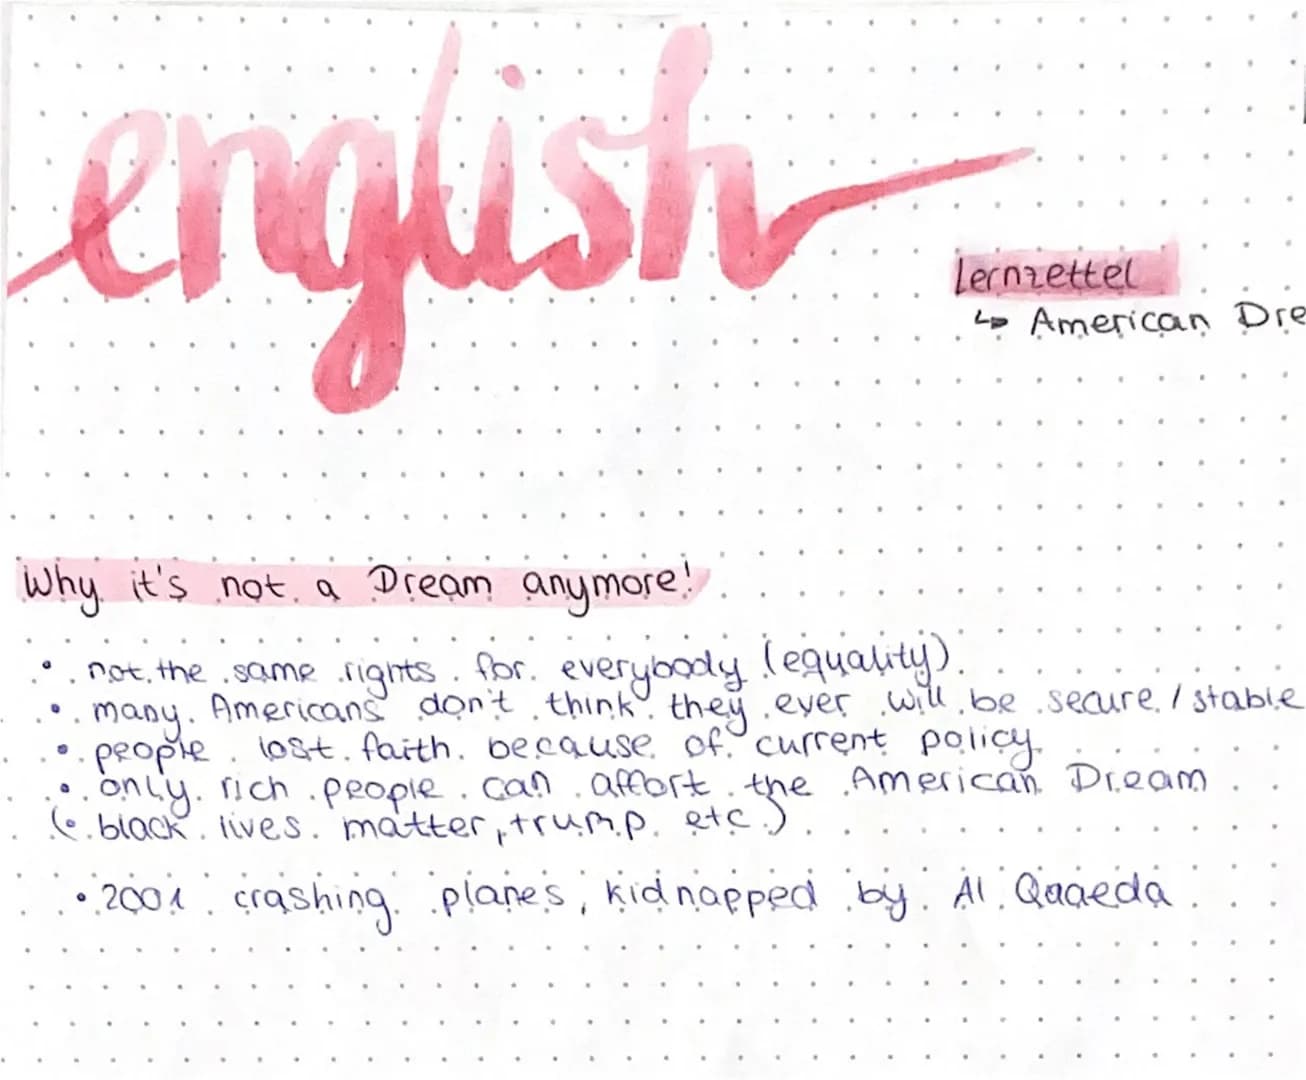 english
Lernzettel
↳ American Dre
Why it's not a Dream anymore!
• not the same rights for everybody (equality)
• many Americans don't think they ever will be secure / stable
• people lost faith because of current policy
• only rich people can affort the American Dream
(• black lives matter, trump etc.)
• 2001 crashing planes, kidnapped by Al Qaaeda